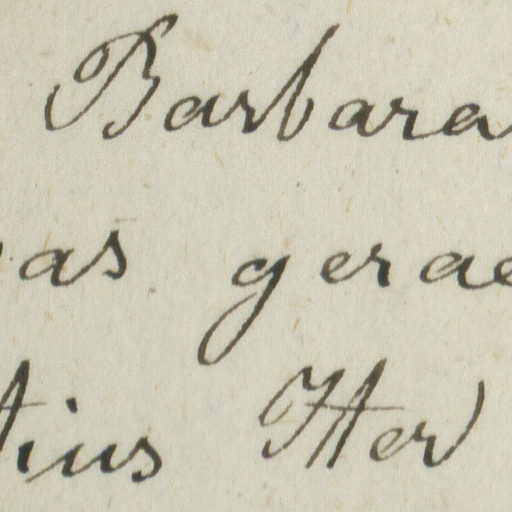 Barbara
as gerae
tius Her